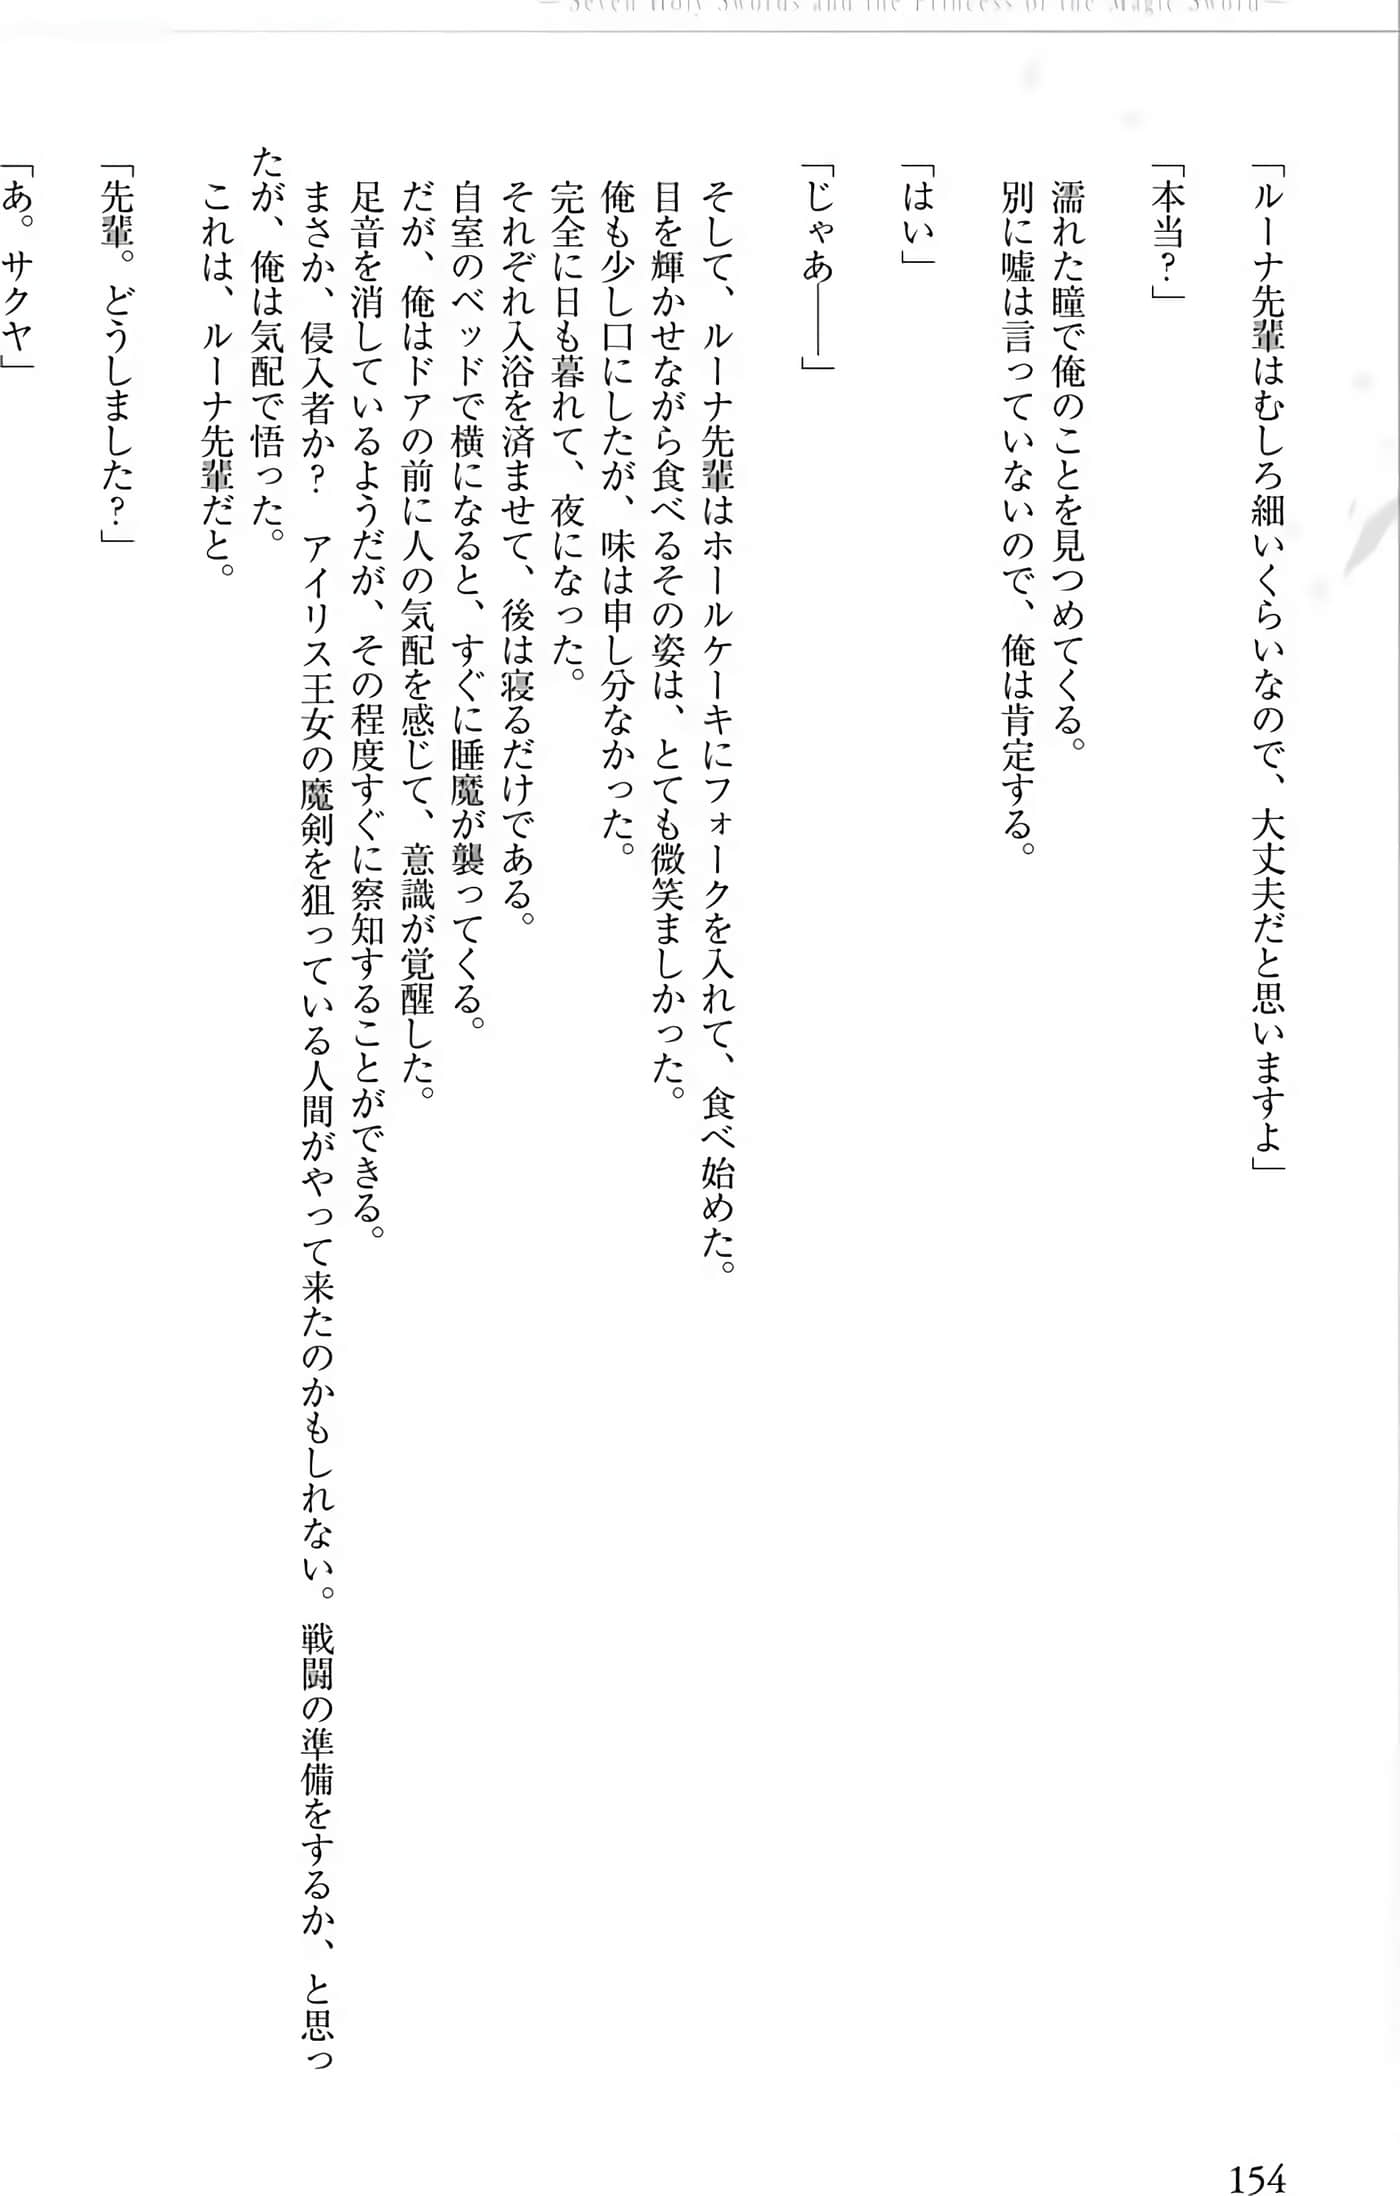 —Seven Holy Swords and the Princess of the Magic Sword—
「ルーナ先輩はむしろ細いくらいなので、大丈夫だと思いますよ」
「本当？」
濡れた瞳で俺のことを見つめてくる。
別に嘘は言っていないので、俺は肯定する。
「はい」
「じゃあ——」
そして、ルーナ先輩はホールケーキにフォークを入れて、食べ始めた。
目を輝かせながら食べるその姿は、とても微笑ましかった。
俺も少し口にしたが、味は申し分なかった。
完全に日も暮れて、夜になった。
それぞれ入浴を済ませて、後は寝るだけである。
自室のベッドで横になると、すぐに睡魔が襲ってくる。
だが、俺はドアの前に人の気配を感じて、意識が覚醒した。
足音を消しているようだが、その程度すぐに察知することができる。
まさか、侵入者か？　アイリス王女の魔剣を狙っている人間がやって来たのかもしれない。戦闘の準備をするか、と思っ
たが、俺は気配で悟った。
これは、ルーナ先輩だと。
「先輩。どうしました？」
「あ。サクヤ」
154